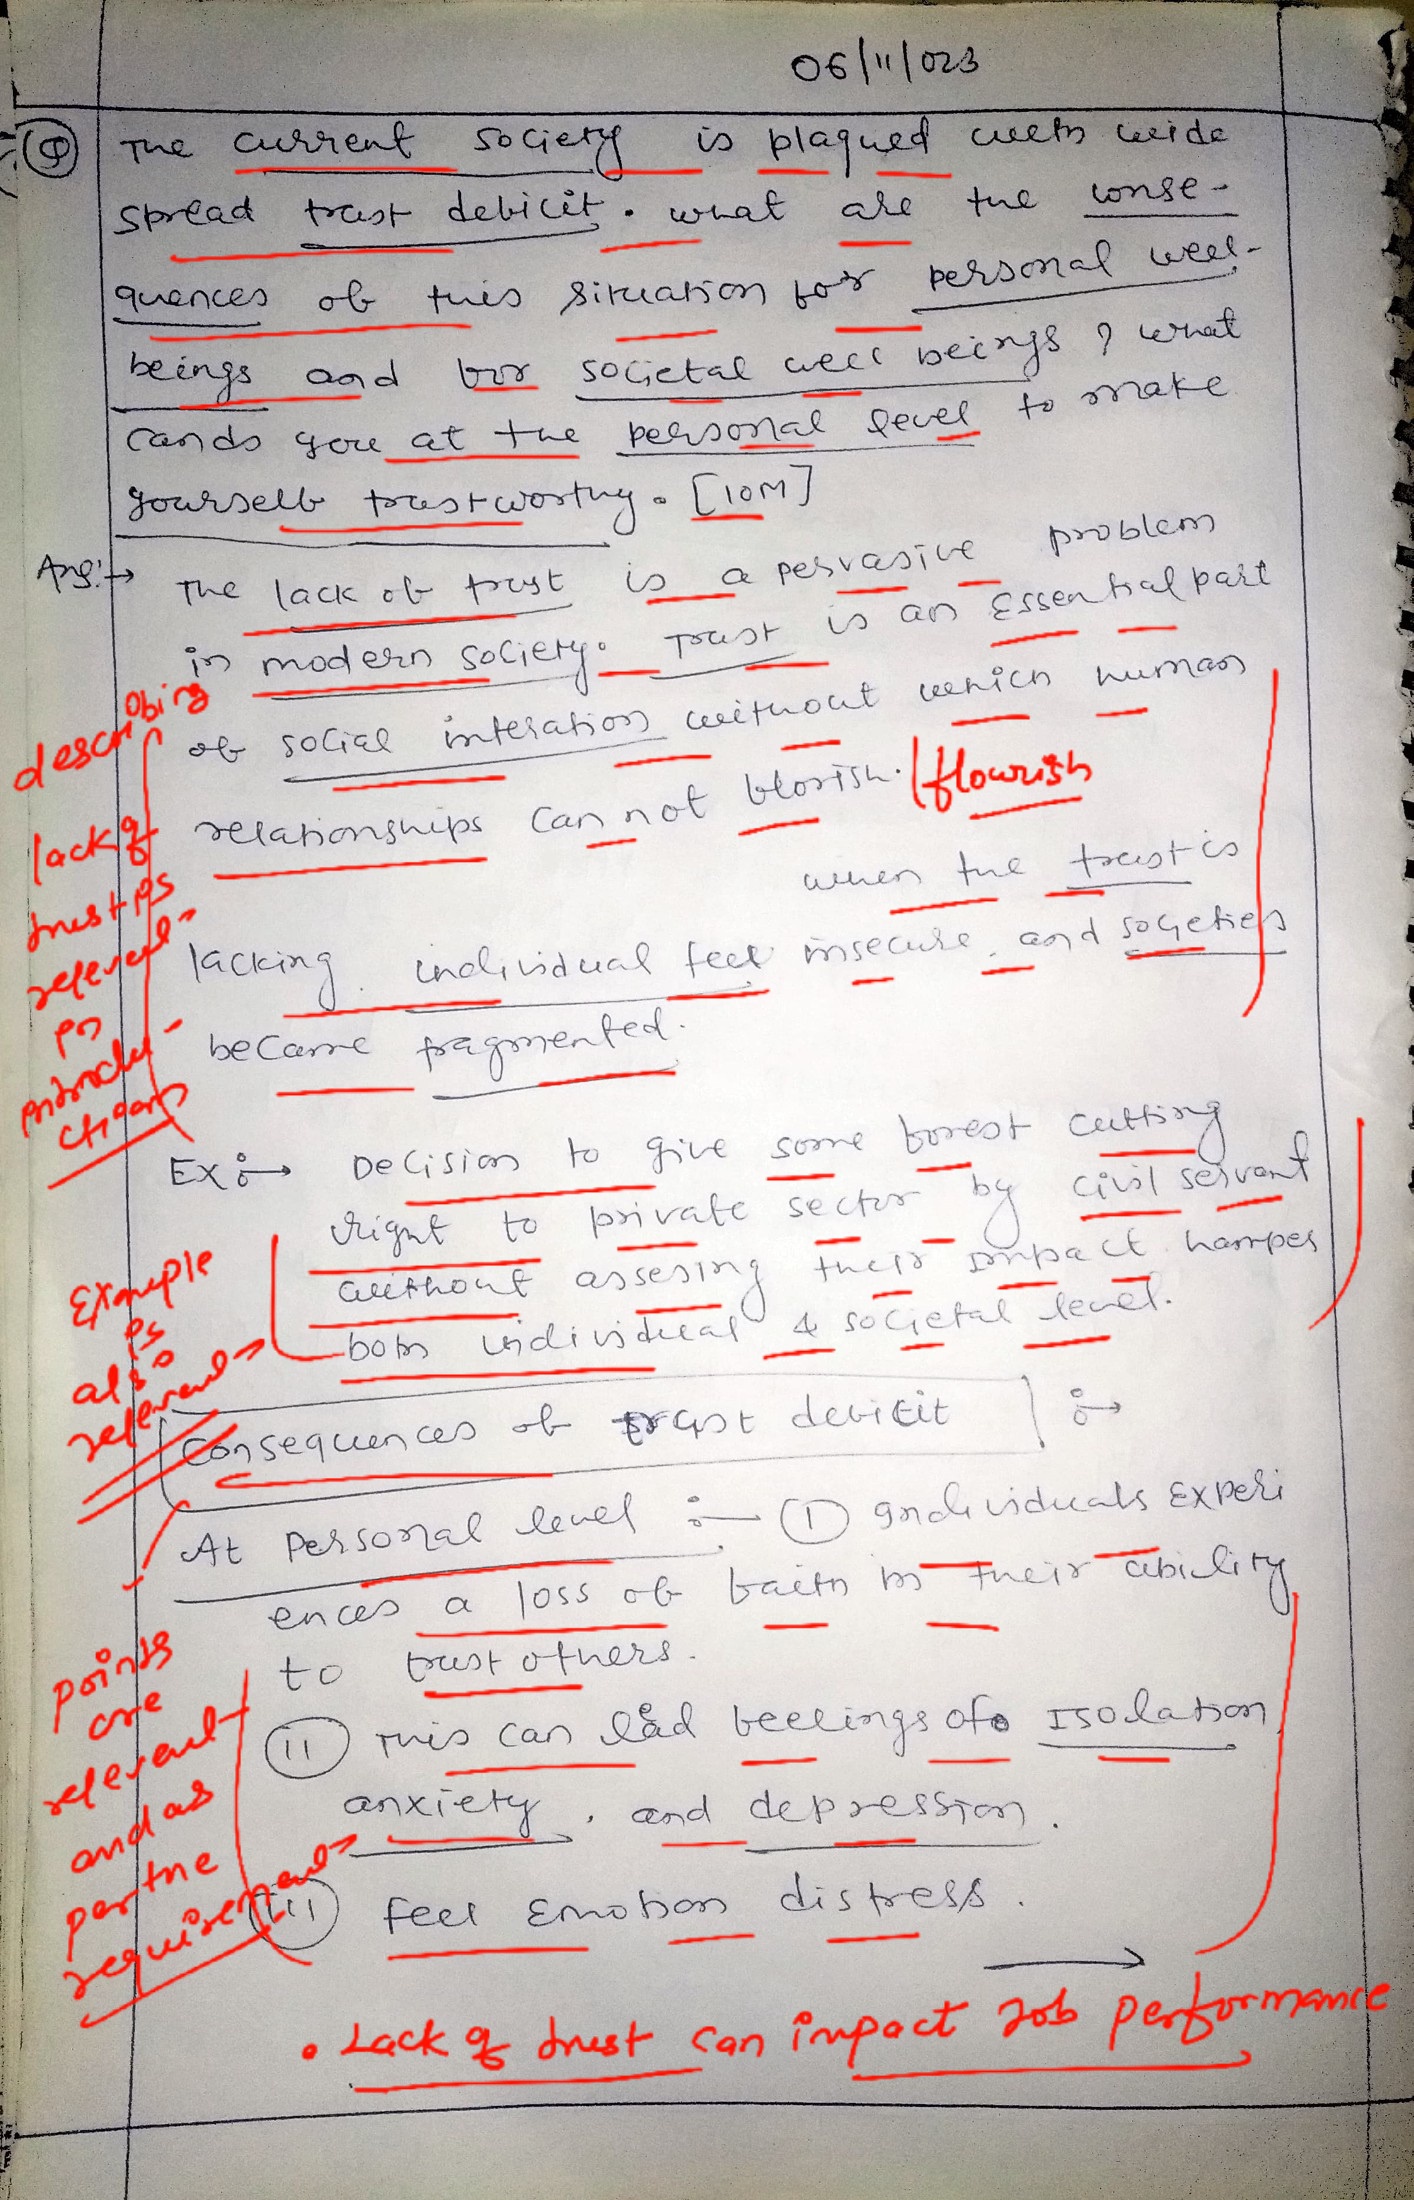 06/11/023
Q The current society is plaqued with wide
spread trust deficit. what are the conse-
quences of this situation for personal well-
beings and for societal well beings? what
can do you at the personal level to make
yourself trustworthy. [10M]
Ans:→ The lack of trust is a pervasive problem
in modern society. Trust is an Essential part
of social interation without which human
relationships can not florish. /flourish
when the trust is
lacking individual feel insecure, and societies
became fragmented.
describing
lack of
trust is
relevent
in
introdu-
ction
Ex:→ Decision to give some forest cutting
right to private sector by civil servant
without assesing their impact hampes
both individual & societal level.
Example
is
also
relevant
Consequences of trust deficit :→
At Personal level :— (I) Individuals Experi
ences a loss of faith in their ability
to trust others.
(ii) This can lead feelings of Isolation
anxiety, and depression.
(iii) Feel Emotion distress.
points
are
relevent
and as
per the
requirement
• Lack of trust can impact Job performance